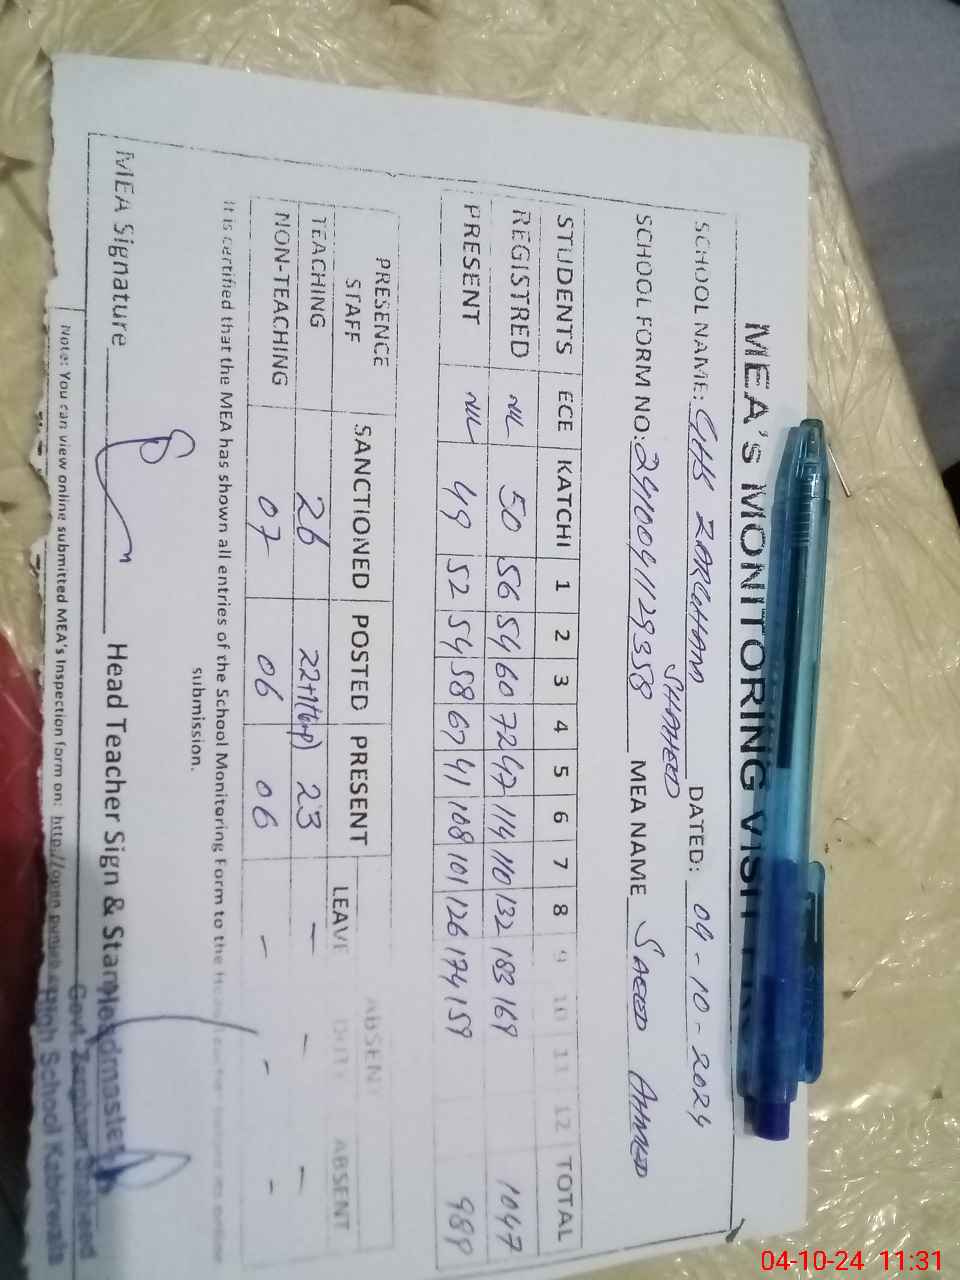 MEA's MONITORING VISIT
SCHOOL NAME: GHS ZARGHAM SHAHEED DATED: 04-10-2024
SCHOOL FORM NO: MEA NAME SAEED AHMED
STUDENTS ECE KATCHI 1 2 3 4 5 6 7 8 9 10 11 12 TOTAL
REGISTRED NIL 50 56 54 60 72 47 114 110 132 183 169 1047
PRESENT NIL 49 52 54 58 67 41 108 101 126 174 159 989
PRESENCE STAFF SANCTIONED POSTED PRESENT ABSENT
LEAVE DUTY ABSENT
TEACHING 26 22+1(Emp) 23 - - -
NON-TEACHING 07 06 06 - - -
It is certified that the MEA has shown all entries of the School Monitoring Form to the
submission.
MEA Signature Head Teacher Sign & Stamp
Headmaster
Govt. Zargham Shaheed
High School Kabirwala
Note: You can view online submitted MEA's Inspection form on: http://open.punjab
04-10-24 11:31